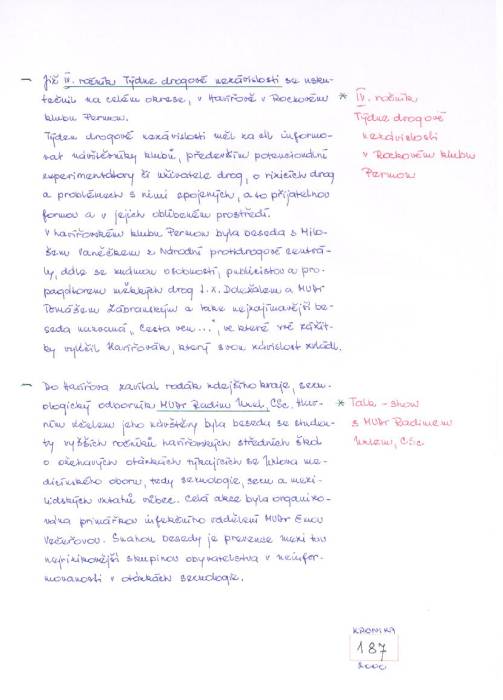 - Již IV. ročník Týdne drogové nezávislosti se usku-
tečnil na celém okrese, v Havířově v Rockovém
klubu Permon.
Týden drogové nezávislosti měl za cíl informo-
vat návštěvníky klubů, především potencionální
experimentátory či uživatele drog, o rizicích drog
a problémech s nimi spojených, a to přijatelnou
formou a v jejich oblíbeném prostředí.
V havířovském klubu Permon byla beseda s Milo-
šem Vaněčkem z Národní protidrogové centrá-
ly, dále se známou osobností, publicistou a pro-
pagátorem měkkých drog J. X. Doležalem a MUDr
Tomášem Zábranským a také nejzajímavější be-
seda nazvaná "Cesta ven...", ve které své zážit-
ky vylíčil Havířovák, který svou závislost zvládl.
* IV. ročník
Týdne drogové
nezávislosti
v Rockovém klubu
Permon
- Do Havířova zavítal rodák zdejšího kraje, sexu-
ologický odborník MUDr Radim Uzel, CSc. Hlav-
ním účelem jeho návštěvy byla beseda se studen-
ty vyšších ročníků havířovských středních škol
o ožehavých otázkách týkajících se Uzlova me-
dicínského oboru, tedy sexuologie, sexu a mezi-
lidských vztahů vůbec. Celá akce byla organizo-
vána primářkou infekčního oddělení MUDr Evou
Večeřovou. Snahou besedy je prevence mezi tou
nejrizikovější skupinou obyvatelstva v neinfor-
movanosti v otázkách sexuologie.
* Talk - show
s MUDr Radimem
Uzlem, CSc.
KRONIKA
187
2000